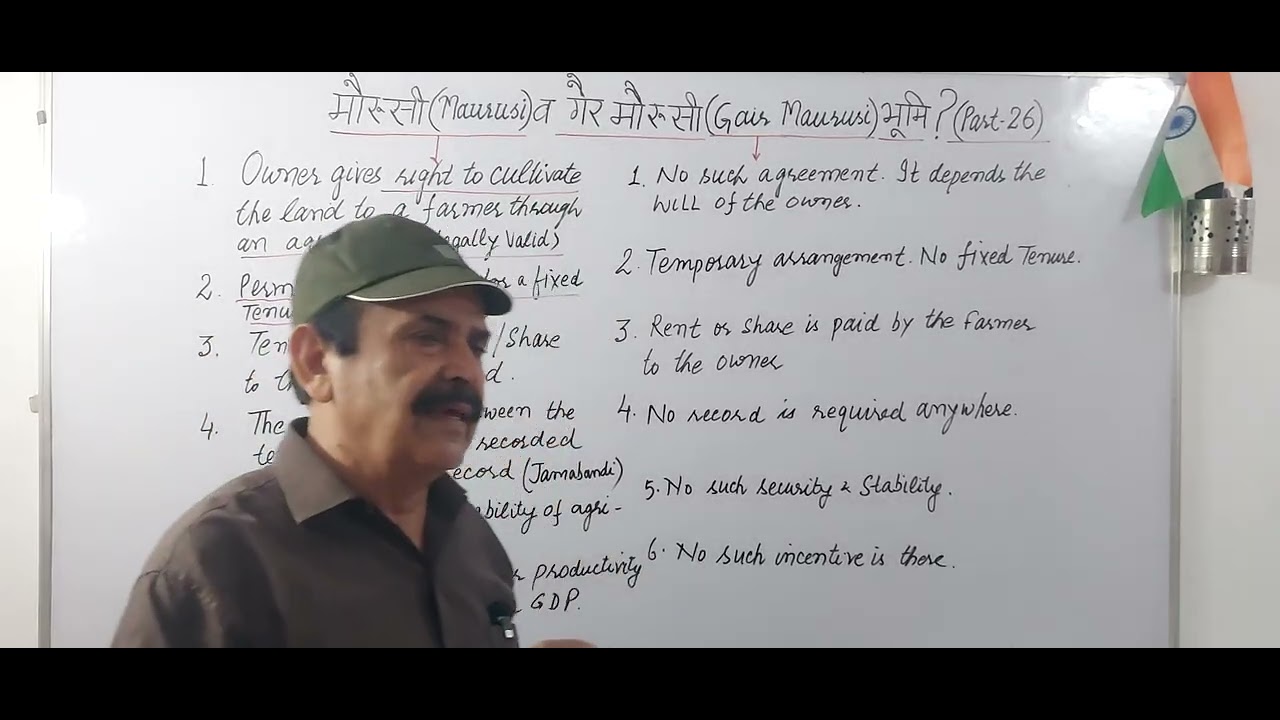 मौरूसी(Maurusi)व गैर मौरूसी(Gair Maurusi)भूमि?(Part-26)
1. Owner gives right to cultivate
the land to a farmer through
an legally valid)
2. for a fixed
3. /Share
to
4. The between the
recorded
record (Jamabandi)
of agri-
Productivity
GDP.
1. No such agreement. It depends the
will of the owner.
2. Temporary arrangement. No fixed Tenure.
3. Rent or share is paid by the farmer
to the owner
4. No record is required anywhere.
5. No such security & Stability.
6. No such incentive is there.